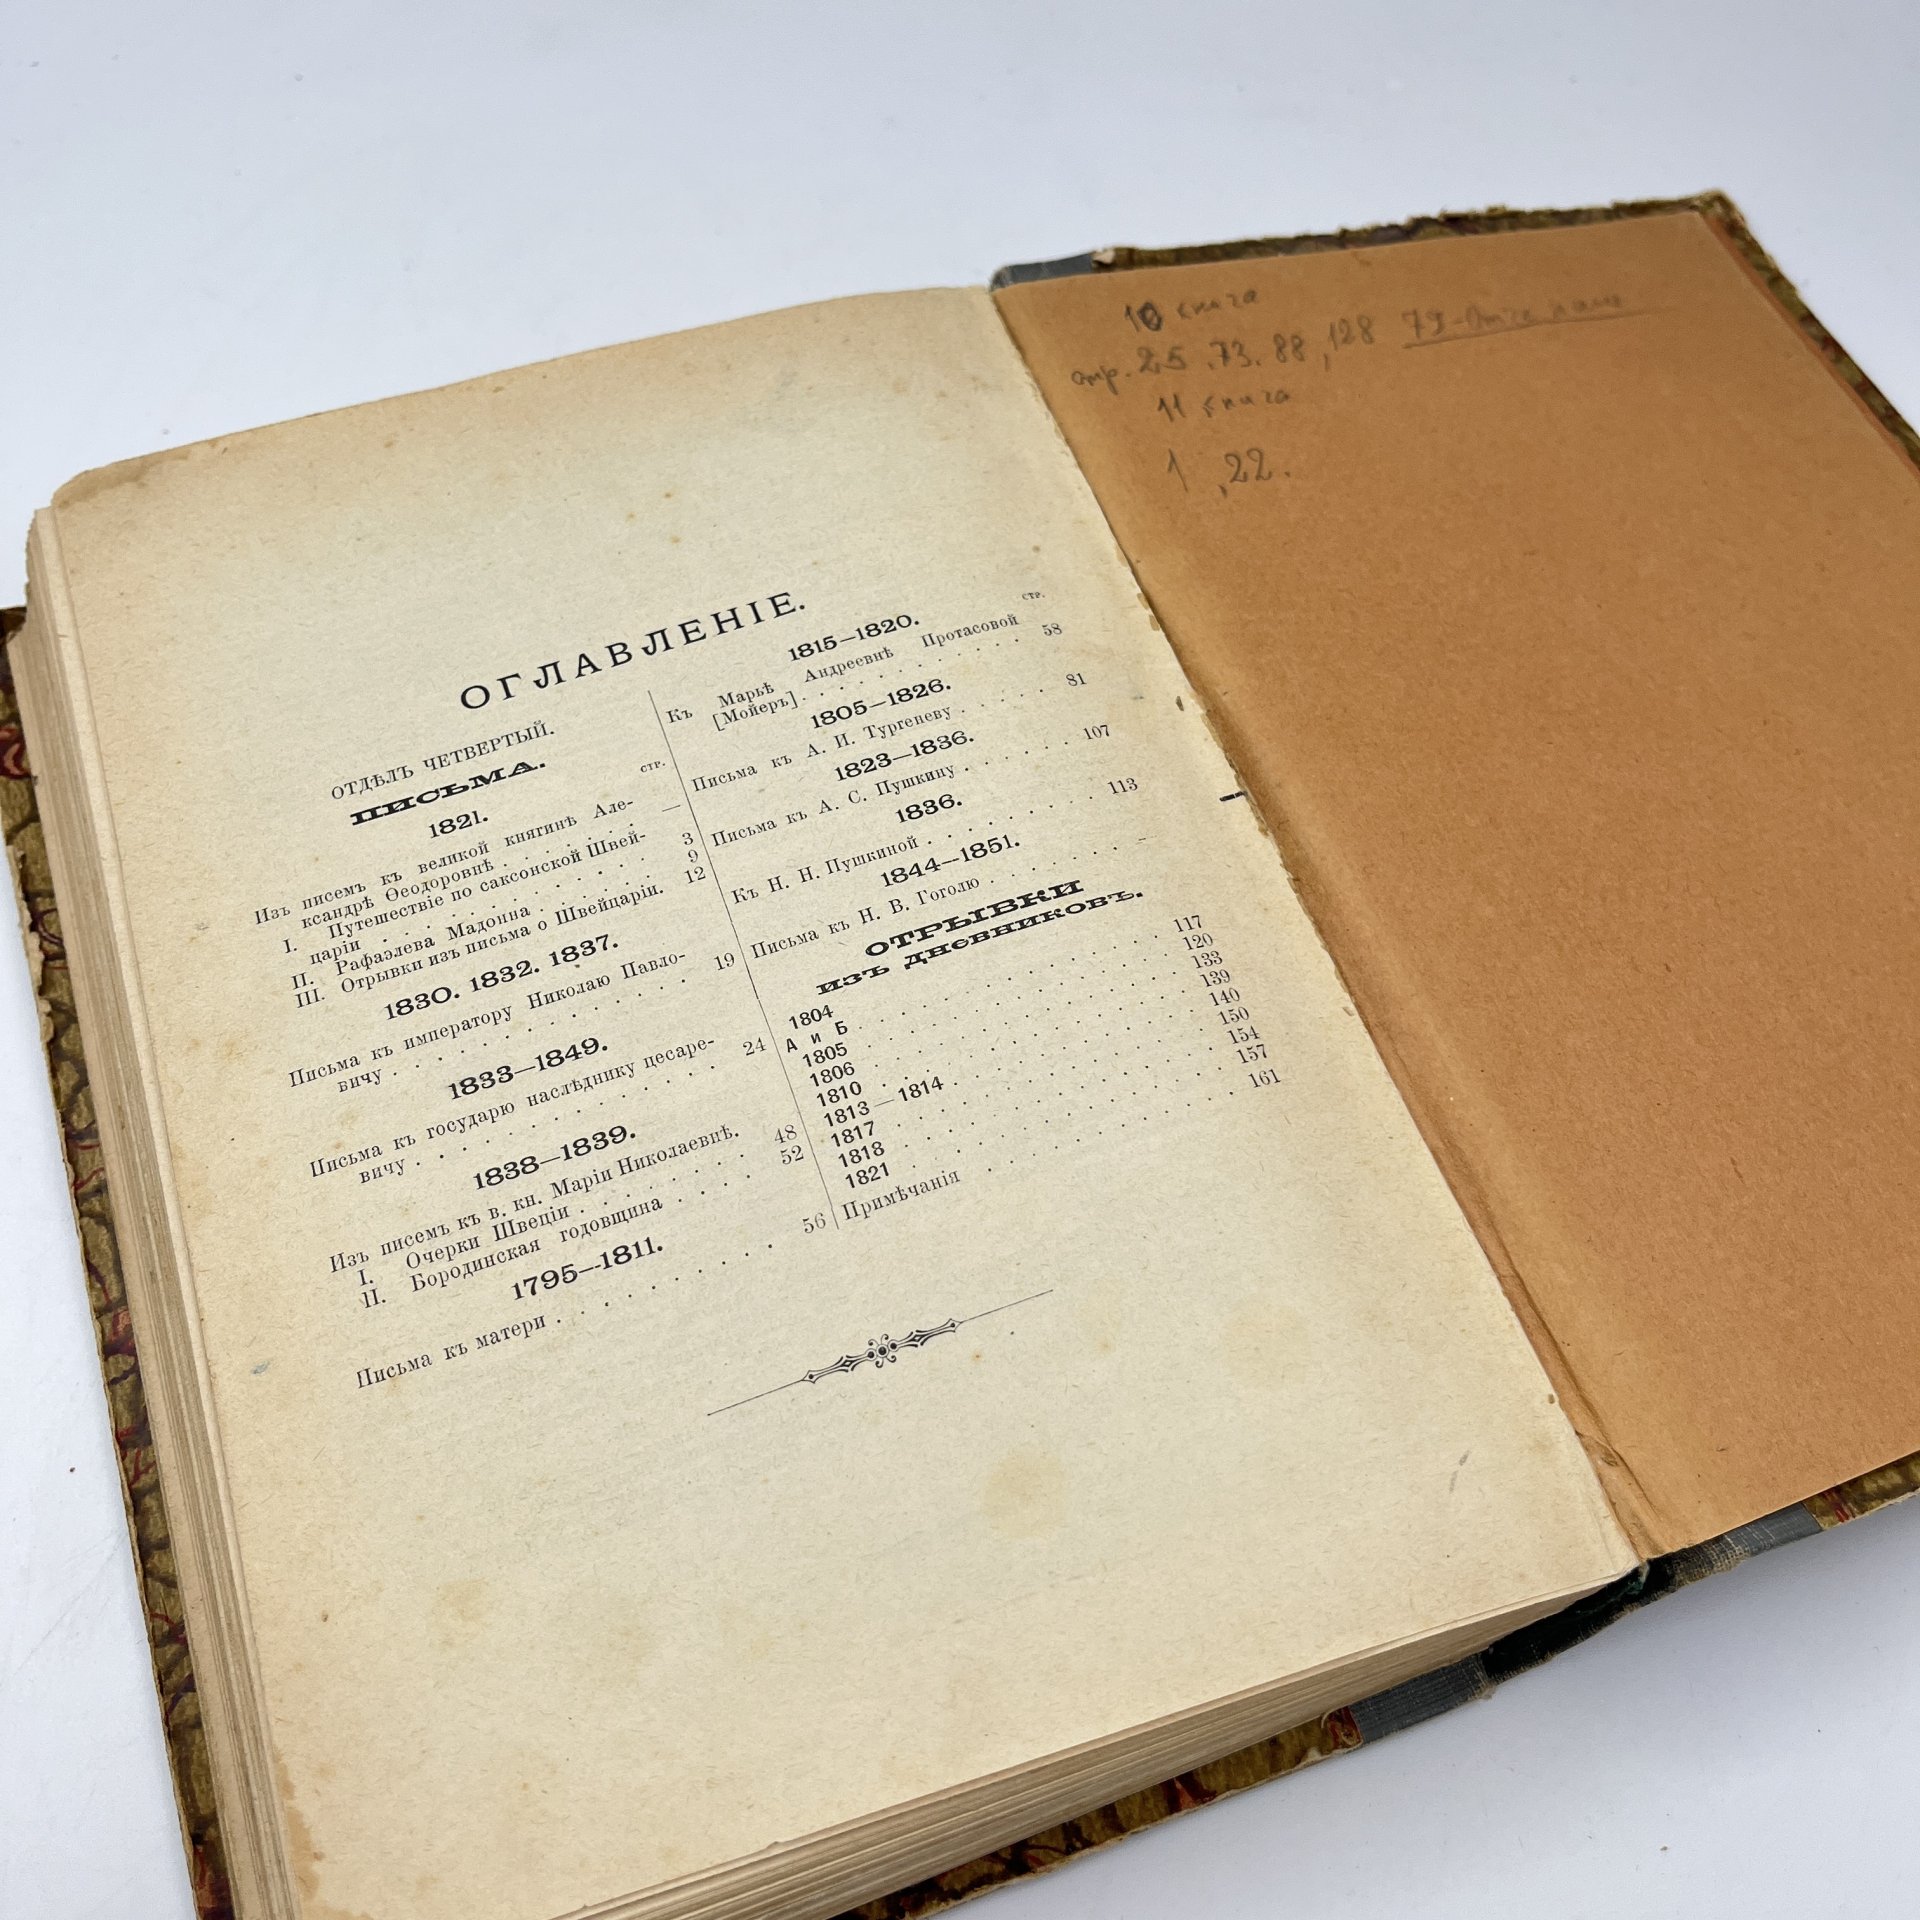 ОГЛАВЛЕНІЕ.
ОТДѢЛЪ ЧЕТВЕРТЫЙ.
ПИСЬМА.
стр.
1821.
Изъ писемъ къ великой княгинѣ Але-
ксандрѣ Ѳеодоровнѣ . . . . . . —
I. Путешествіе по саксонской Швей-
царіи . . . . . . . . . 3
II. Рафаэлева Мадонна . . . . . . 9
III. Отрывки изъ письма о Швейцаріи. 12
1830. 1832. 1837.
Письма къ императору Николаю Павло-
вичу . . . . . . . . . . 19
1833—1849.
Письма къ государю наслѣднику цесаре-
вичу . . . . . . . . . . 24
1838—1839.
Изъ писемъ къ в. кн. Маріи Николаевнѣ.
I. Очерки Швеціи . . . . . . . 48
II. Бородинская годовщина . . . . 52
1795—1811.
Письма къ матери . . . . . . . . 56
стр.
1815—1820.
Къ Марьѣ Андреевнѣ Протасовой
[Мойеръ] . . . . . . . . . 58
1805—1826.
Письма къ А. И. Тургеневу . . . . . 81
1823—1836.
Письма къ А. С. Пушкину . . . . . 107
1836.
Къ Н. Н. Пушкиной . . . . . . . 113
1844—1851.
Письма къ Н. В. Гоголю . . . . . . –
ОТРЫВКИ
ИЗЪ ДНЕВНИКОВЪ.
1804 . . . . . . . . . . . 117
А и Б . . . . . . . . . . 120
1805 . . . . . . . . . . . 133
1806 . . . . . . . . . . . 139
1810 . . . . . . . . . . . 140
1813—1814 . . . . . . . . . 150
1817 . . . . . . . . . . . 154
1818 . . . . . . . . . . . 157
1821 . . . . . . . . . . .
Примѣчанія . . . . . . . . . 161
10 книга
стр. 25, 73. 88, 128 79-
11 книга
1, 22.